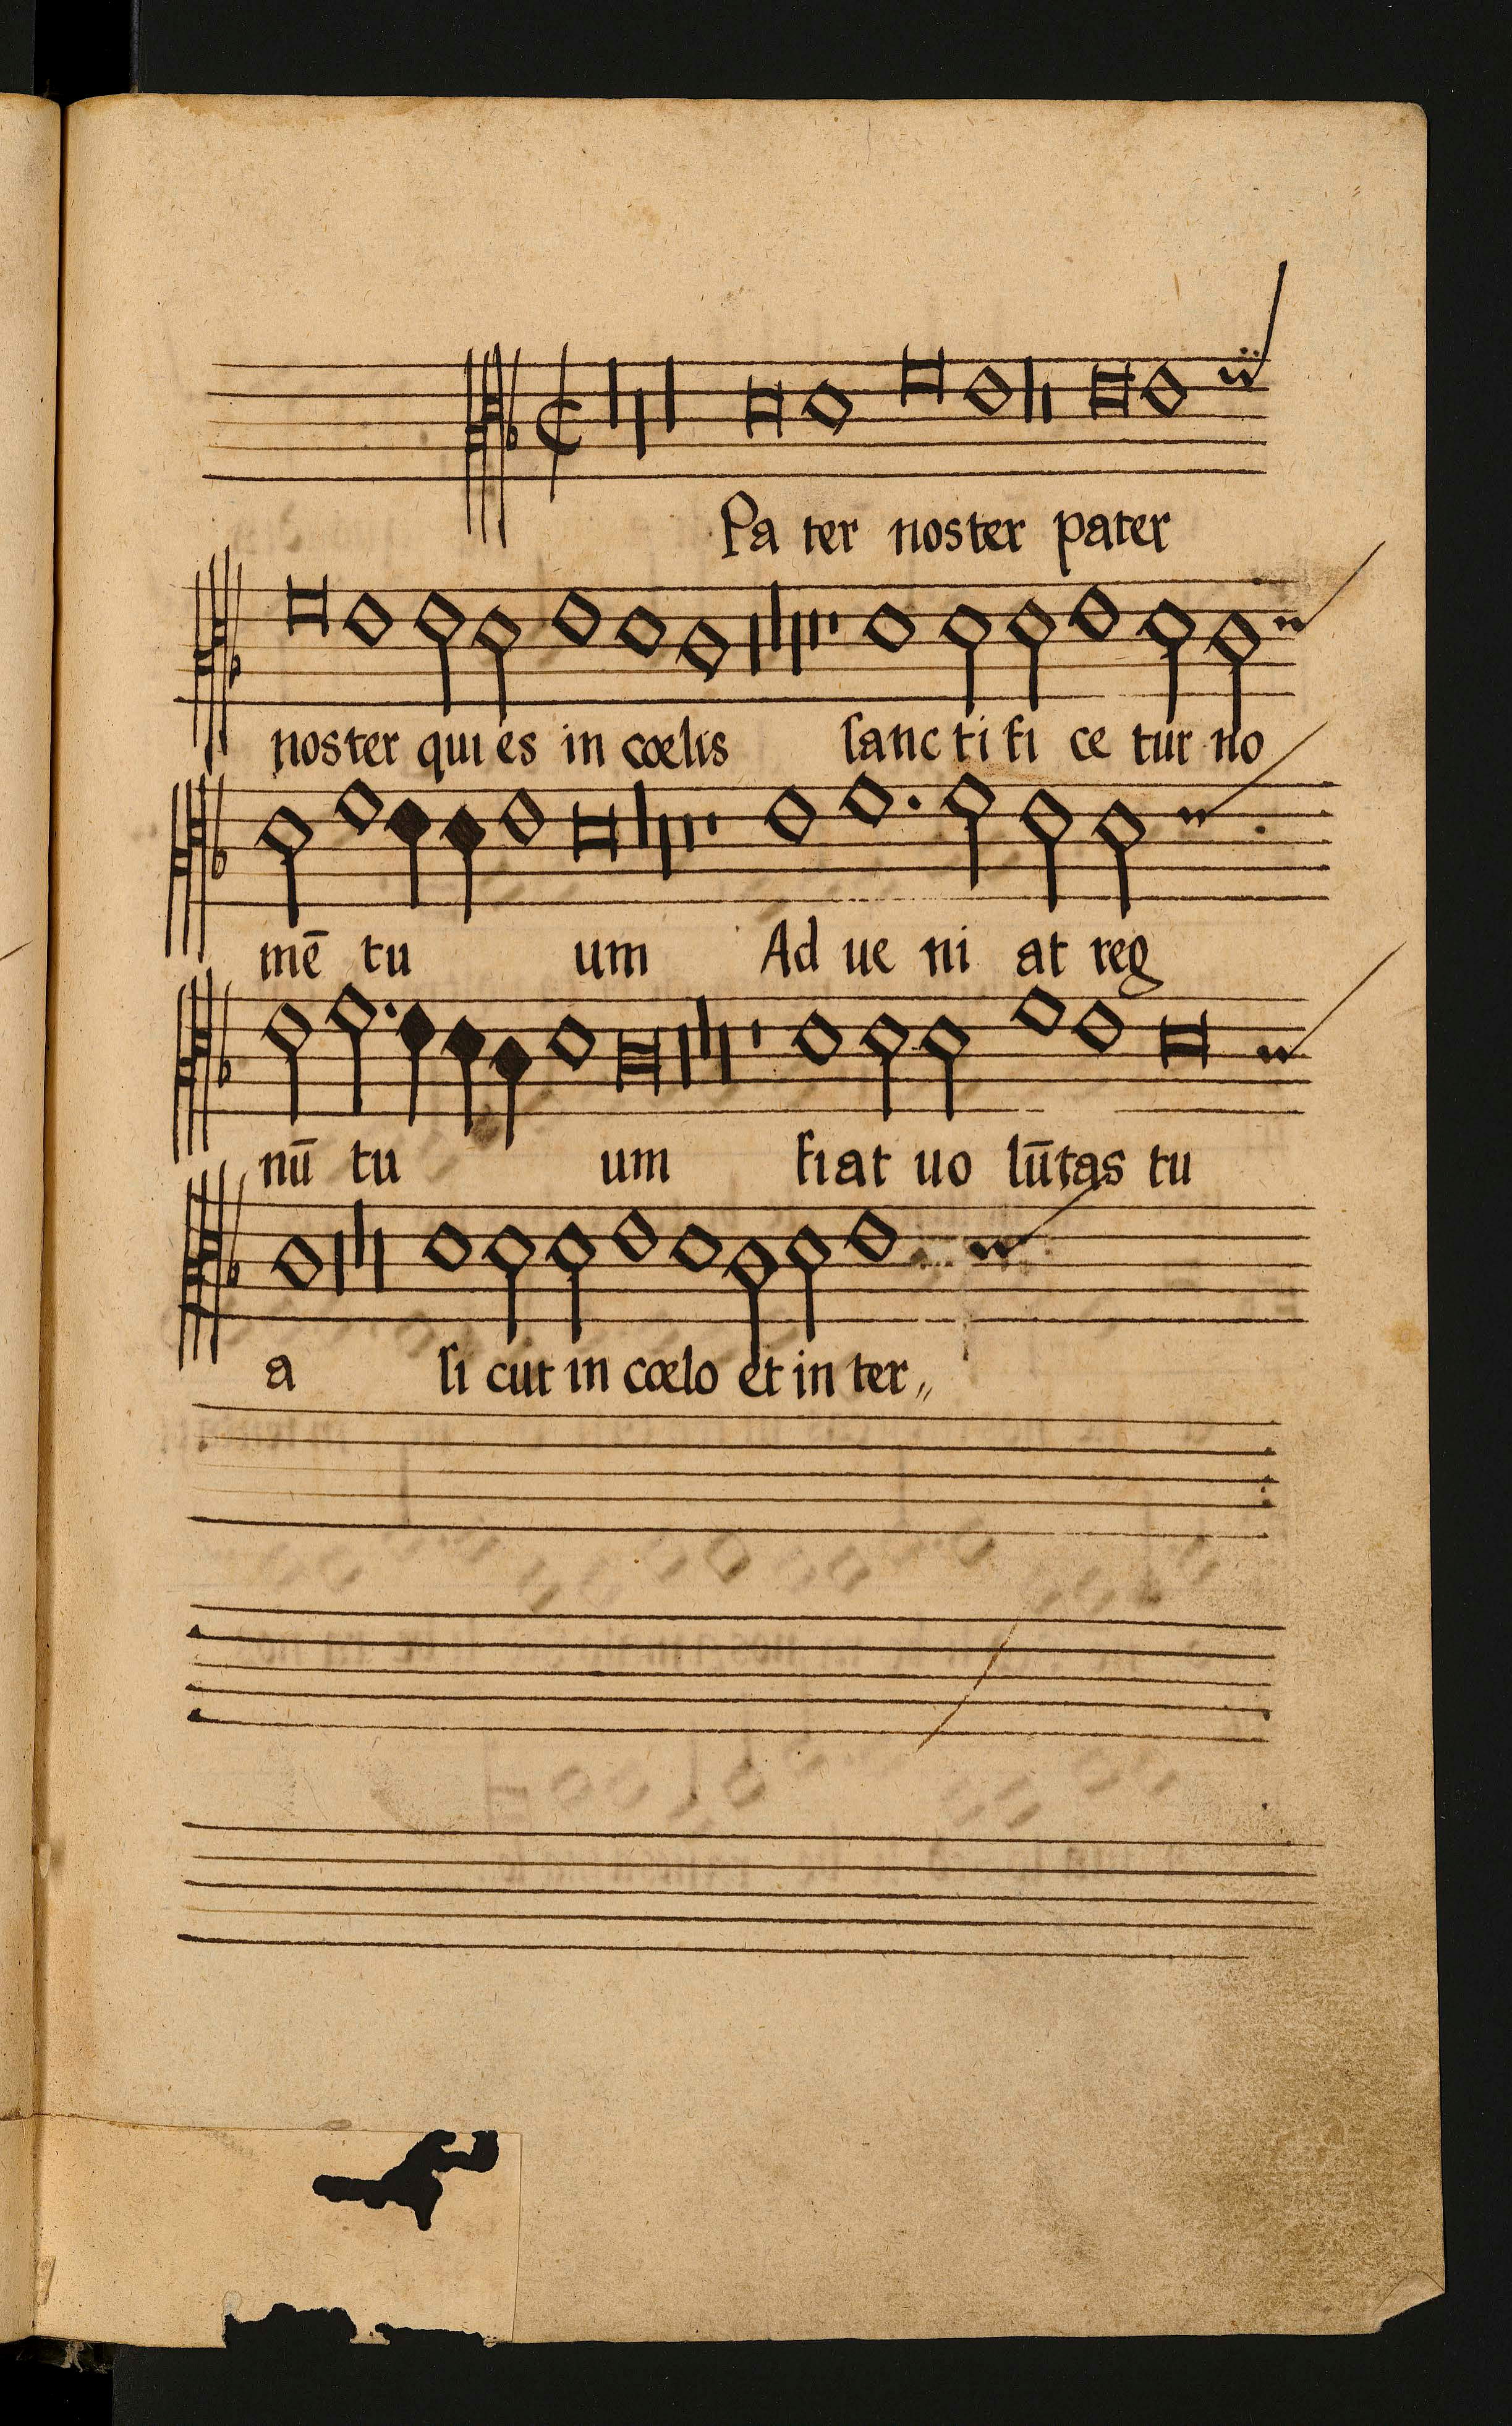 Pa ter noster pater
noster qui es in cœlis ſanc ti fi ce tur no
mē tu um Ad ue ni at reg
nū tu um fiat uo lūtas tu
a ſi cut in cœlo et in ter〃